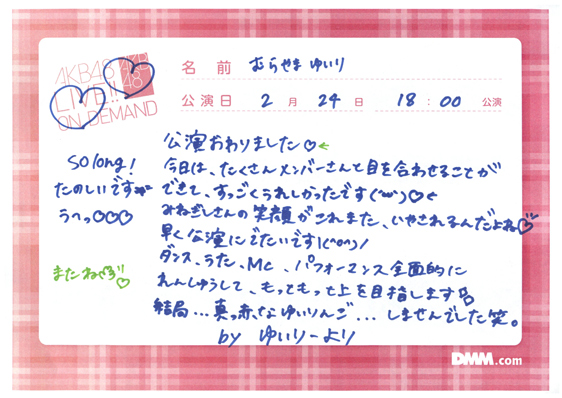 AKB48
LIVE!!
ON DEMAND
AKB
48
名前 むらやま ゆいり
公演日 2月 24日 18:00 公演
公演おわりました♡←
今日は、たくさんメンバーさんと目を合わせることが
できて、すっごくうれしかったです(´﹀`)♡←
みねぎしさんの笑顔がこれまた、いやされるんだよね♡
早く公演にでたいです!(^o^)/
ダンス、うた、MC、パフォーマンス全面的に
れんしゅうして、もってもっと上を目指します
結局...真っ赤なゆいりんご...しませんでした笑。
by ゆいりーより
so long!
たのしいです
うへっ♡♡♡
またね
DMM.com